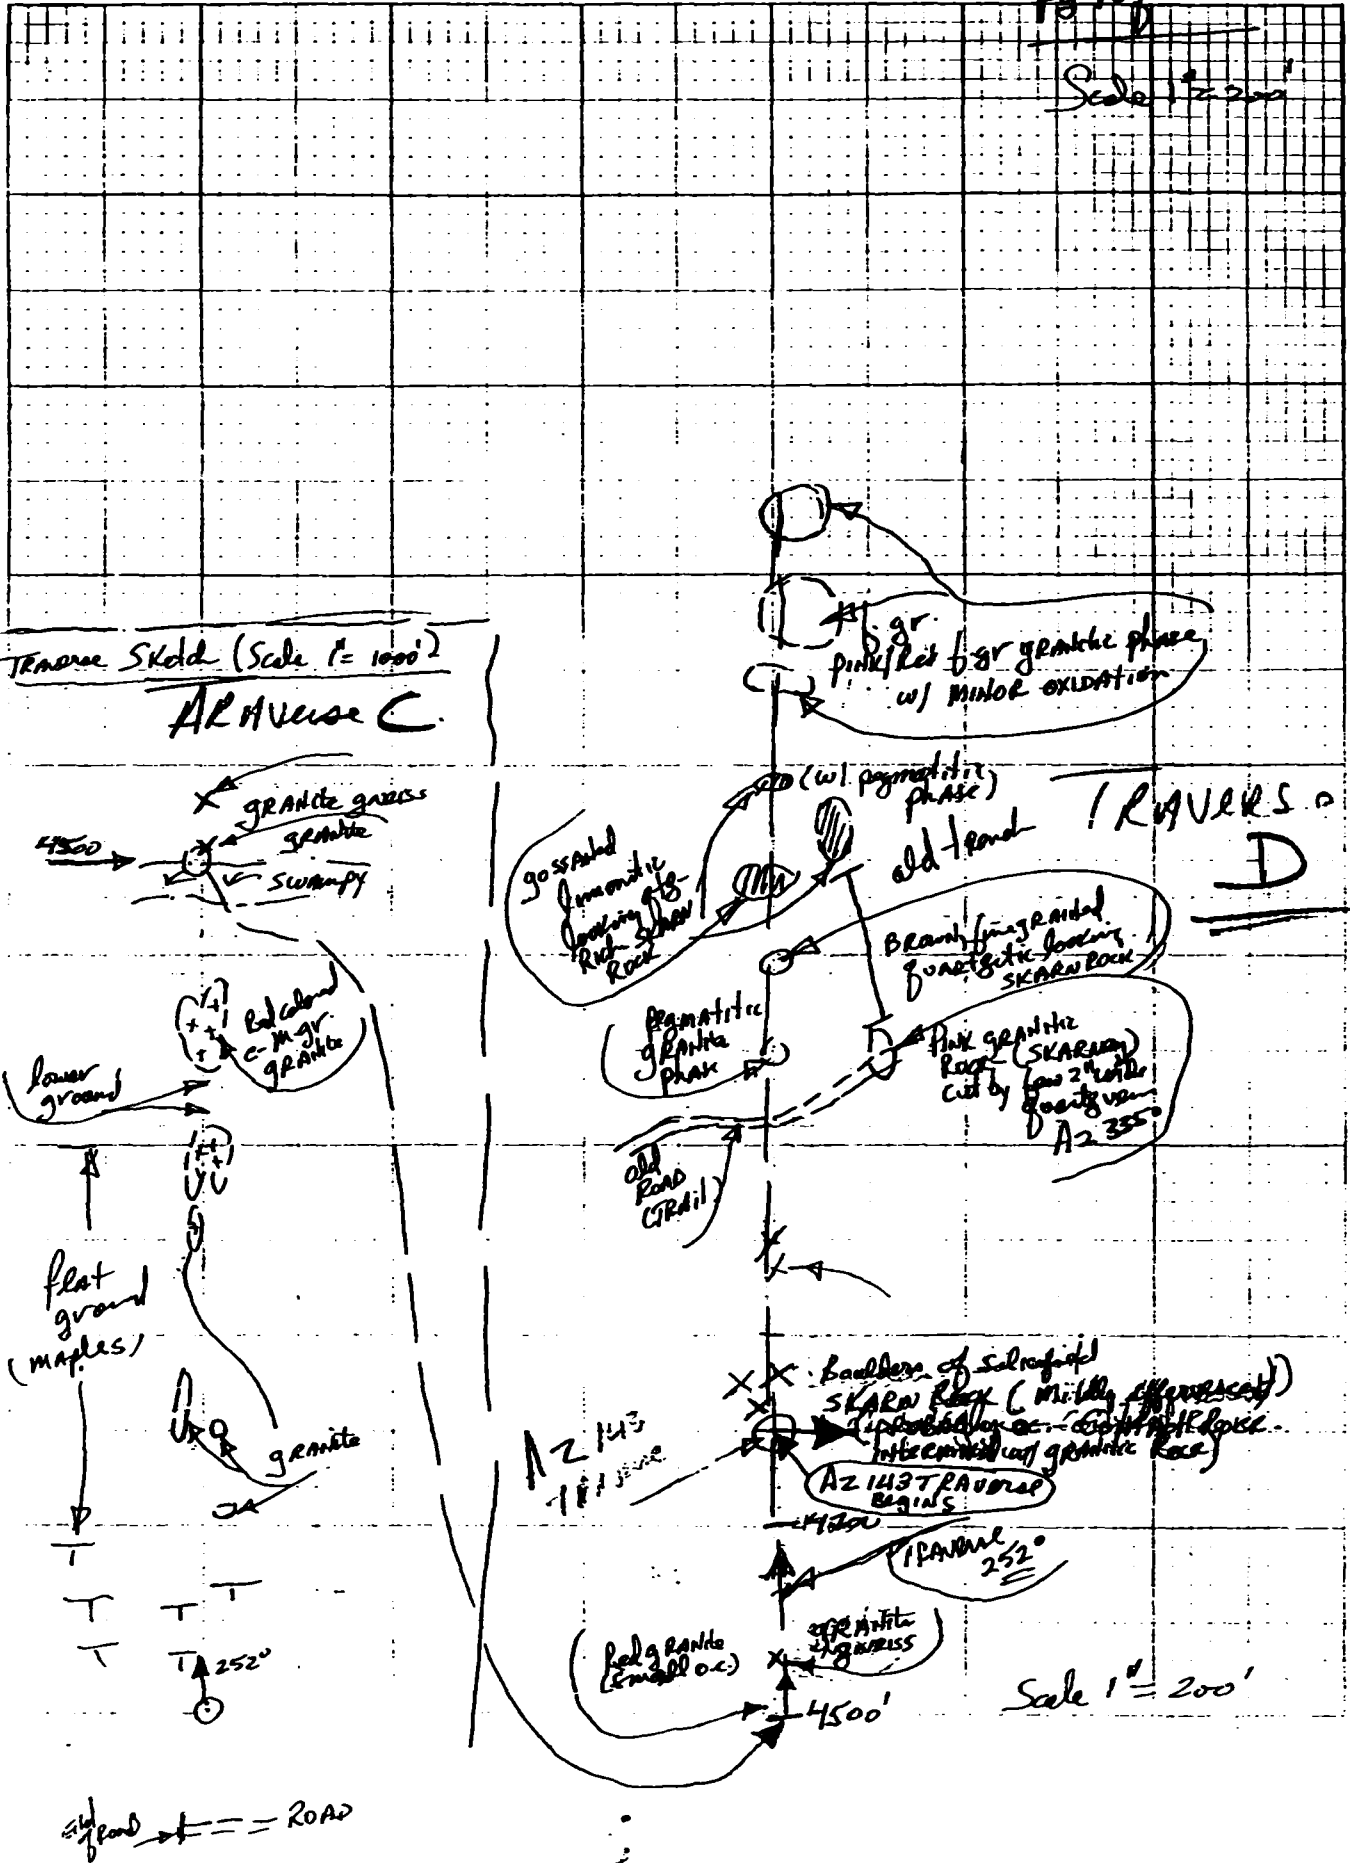 Scale 1" = 200'
TRAVERSE Sketch (Scale 1" = 1000')
TRAVERSE C
granite gneiss
4500
granite
swampy
Red coloured
c-m gr.
granite
lower
ground
flat
ground
(maples)
granite
252°
end
of Road
ROAD
f. gr.
pink/Red f-gr granitic phase
w/ MINOR OXIDATION
(w/ pegmatitic
phase)
TRAVERSE
D
old trench
gossaned
limonitic
looking qtz-
Rich SKARN
ROCK
Brown fine grained
quartzitic looking
SKARN ROCK
Pegmatitic
granite
phase
Pink granitic
Rock (SKARNEY)
cut by few 2" wide
quartz veins
Az 335°
old
ROAD
(TRAIL)
Boulders of silicified
SKARN Rock (mildly effervescent)
intermixed w/ granitic Rock)
Az 143
traverse
Az 143 TRAVERSE
BEGINS
4700
TRAVERSE
252°
Red granite
(small o.c.)
granite
gneiss
4500'
Scale 1" = 200'